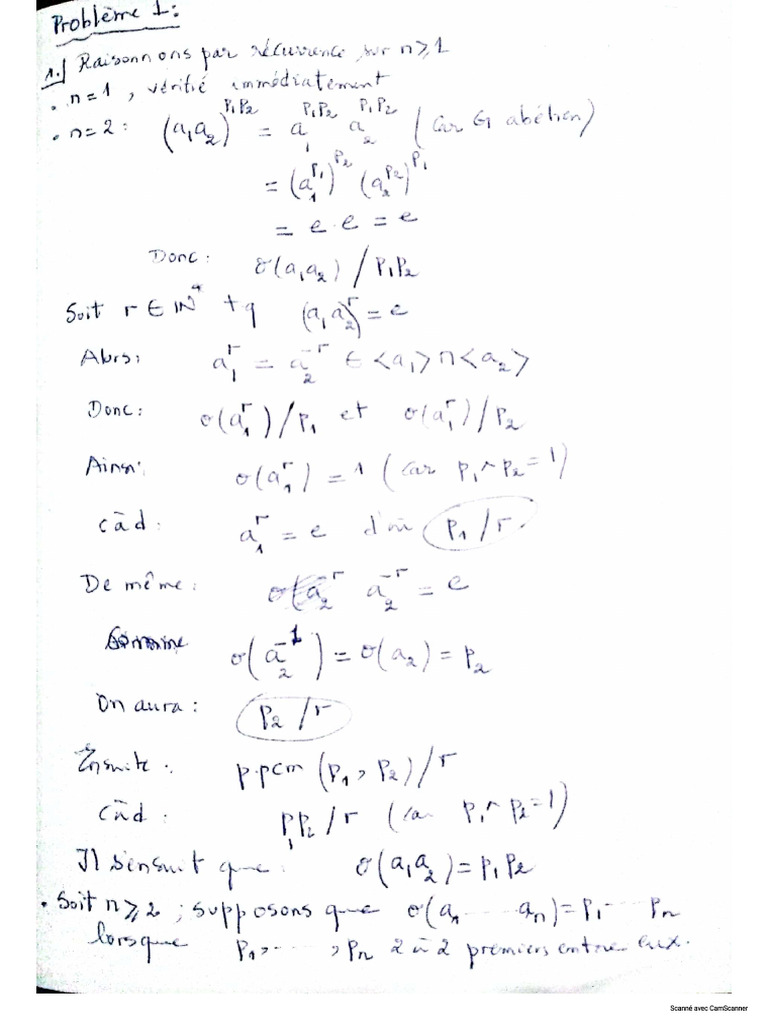 Problème 1:
1.) Raisonnons par récurrence sur n ≥ 1
• n=1, vérifié immédiatement
• n=2: (a₁a₂)^{P₁P₂} = a₁^{P₁P₂} a₂^{P₁P₂} (car G abélien)
= (a₁^{P₁})^{P₂} (a₂^{P₂})^{P₁}
= e.e = e
Donc: σ(a₁a₂) / P₁P₂
Soit r ∈ IN* tq (a₁a₂)^r = e
Alors: a₁^r = a₂^{-r} ∈ <a₁> ∩ <a₂>
Donc: σ(a₁^r)/P₁ et σ(a₁^r)/P₂
Ainsi: σ(a₁^r) = 1 (car P₁ ∧ P₂ = 1)
càd: a₁^r = e d'où P₁/r
De même: a₂^{-r} = e
σ(a₂^{-1}) = σ(a₂) = P₂
On aura: P₂/r
Ensuite: p.pcm (P₁, P₂)/r
càd: P₁P₂/r (car P₁ ∧ P₂ = 1)
Il s'ensuit que: σ(a₁a₂) = P₁P₂
• Soit n ≥ 2; supposons que σ(a₁ ... aₙ) = P₁ ... Pₙ
lorsque P₁, ..., Pₙ 2 à 2 premiers entre eux.
Scanné avec CamScanner